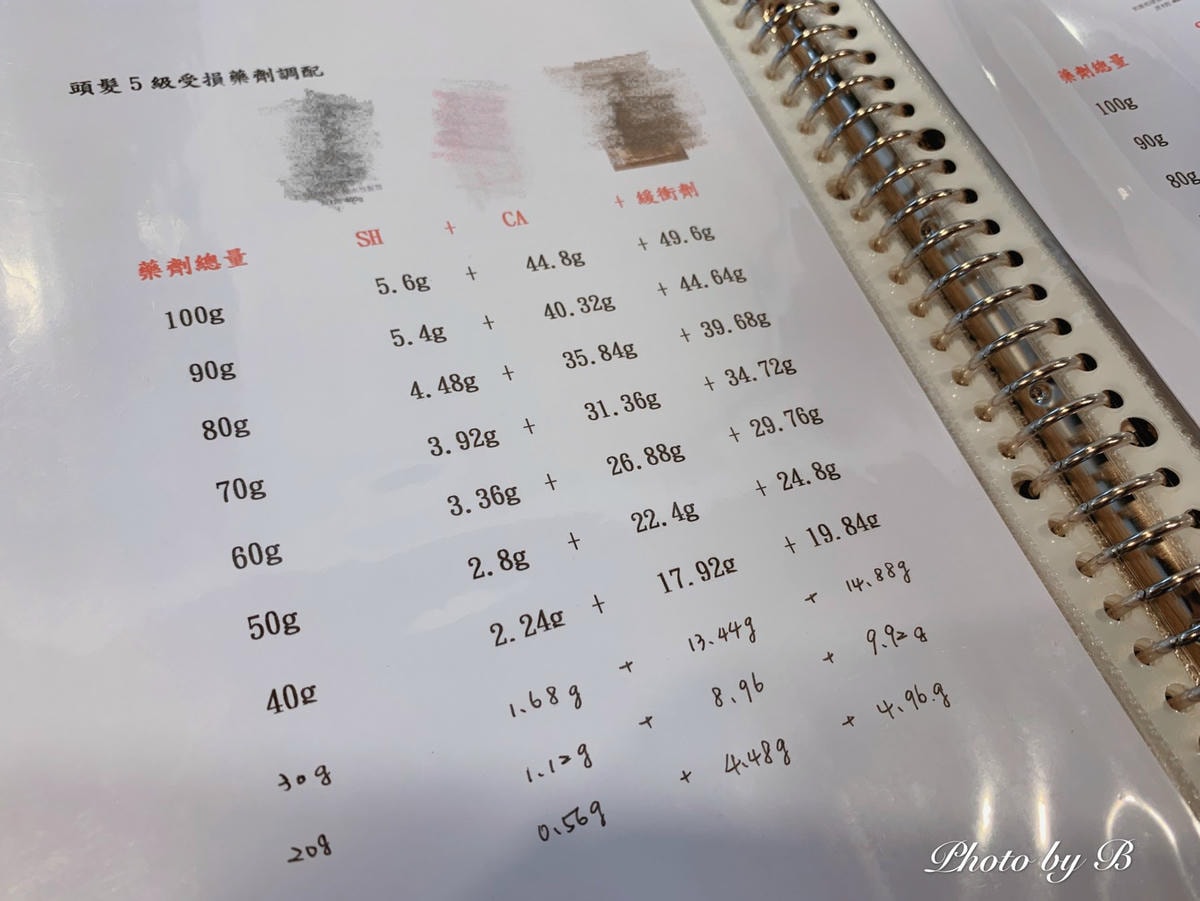 頭髮5級受損藥劑調配
藥劑總量 SH + CA + 緩衝劑
100g 5.6g + 44.8g + 49.6g
90g 5.4g + 40.32g + 44.64g
80g 4.48g + 35.84g + 39.68g
70g 3.92g + 31.36g + 34.72g
60g 3.36g + 26.88g + 29.76g
50g 2.8g + 22.4g + 24.8g
40g 2.24g + 17.92g + 19.84g
30g 1.68g + 13.44g + 14.88g
20g 1.12g + 8.96 + 9.92g
0.56g + 4.48g + 4.96g
藥劑總量
100g
90g
80g
Photo by B